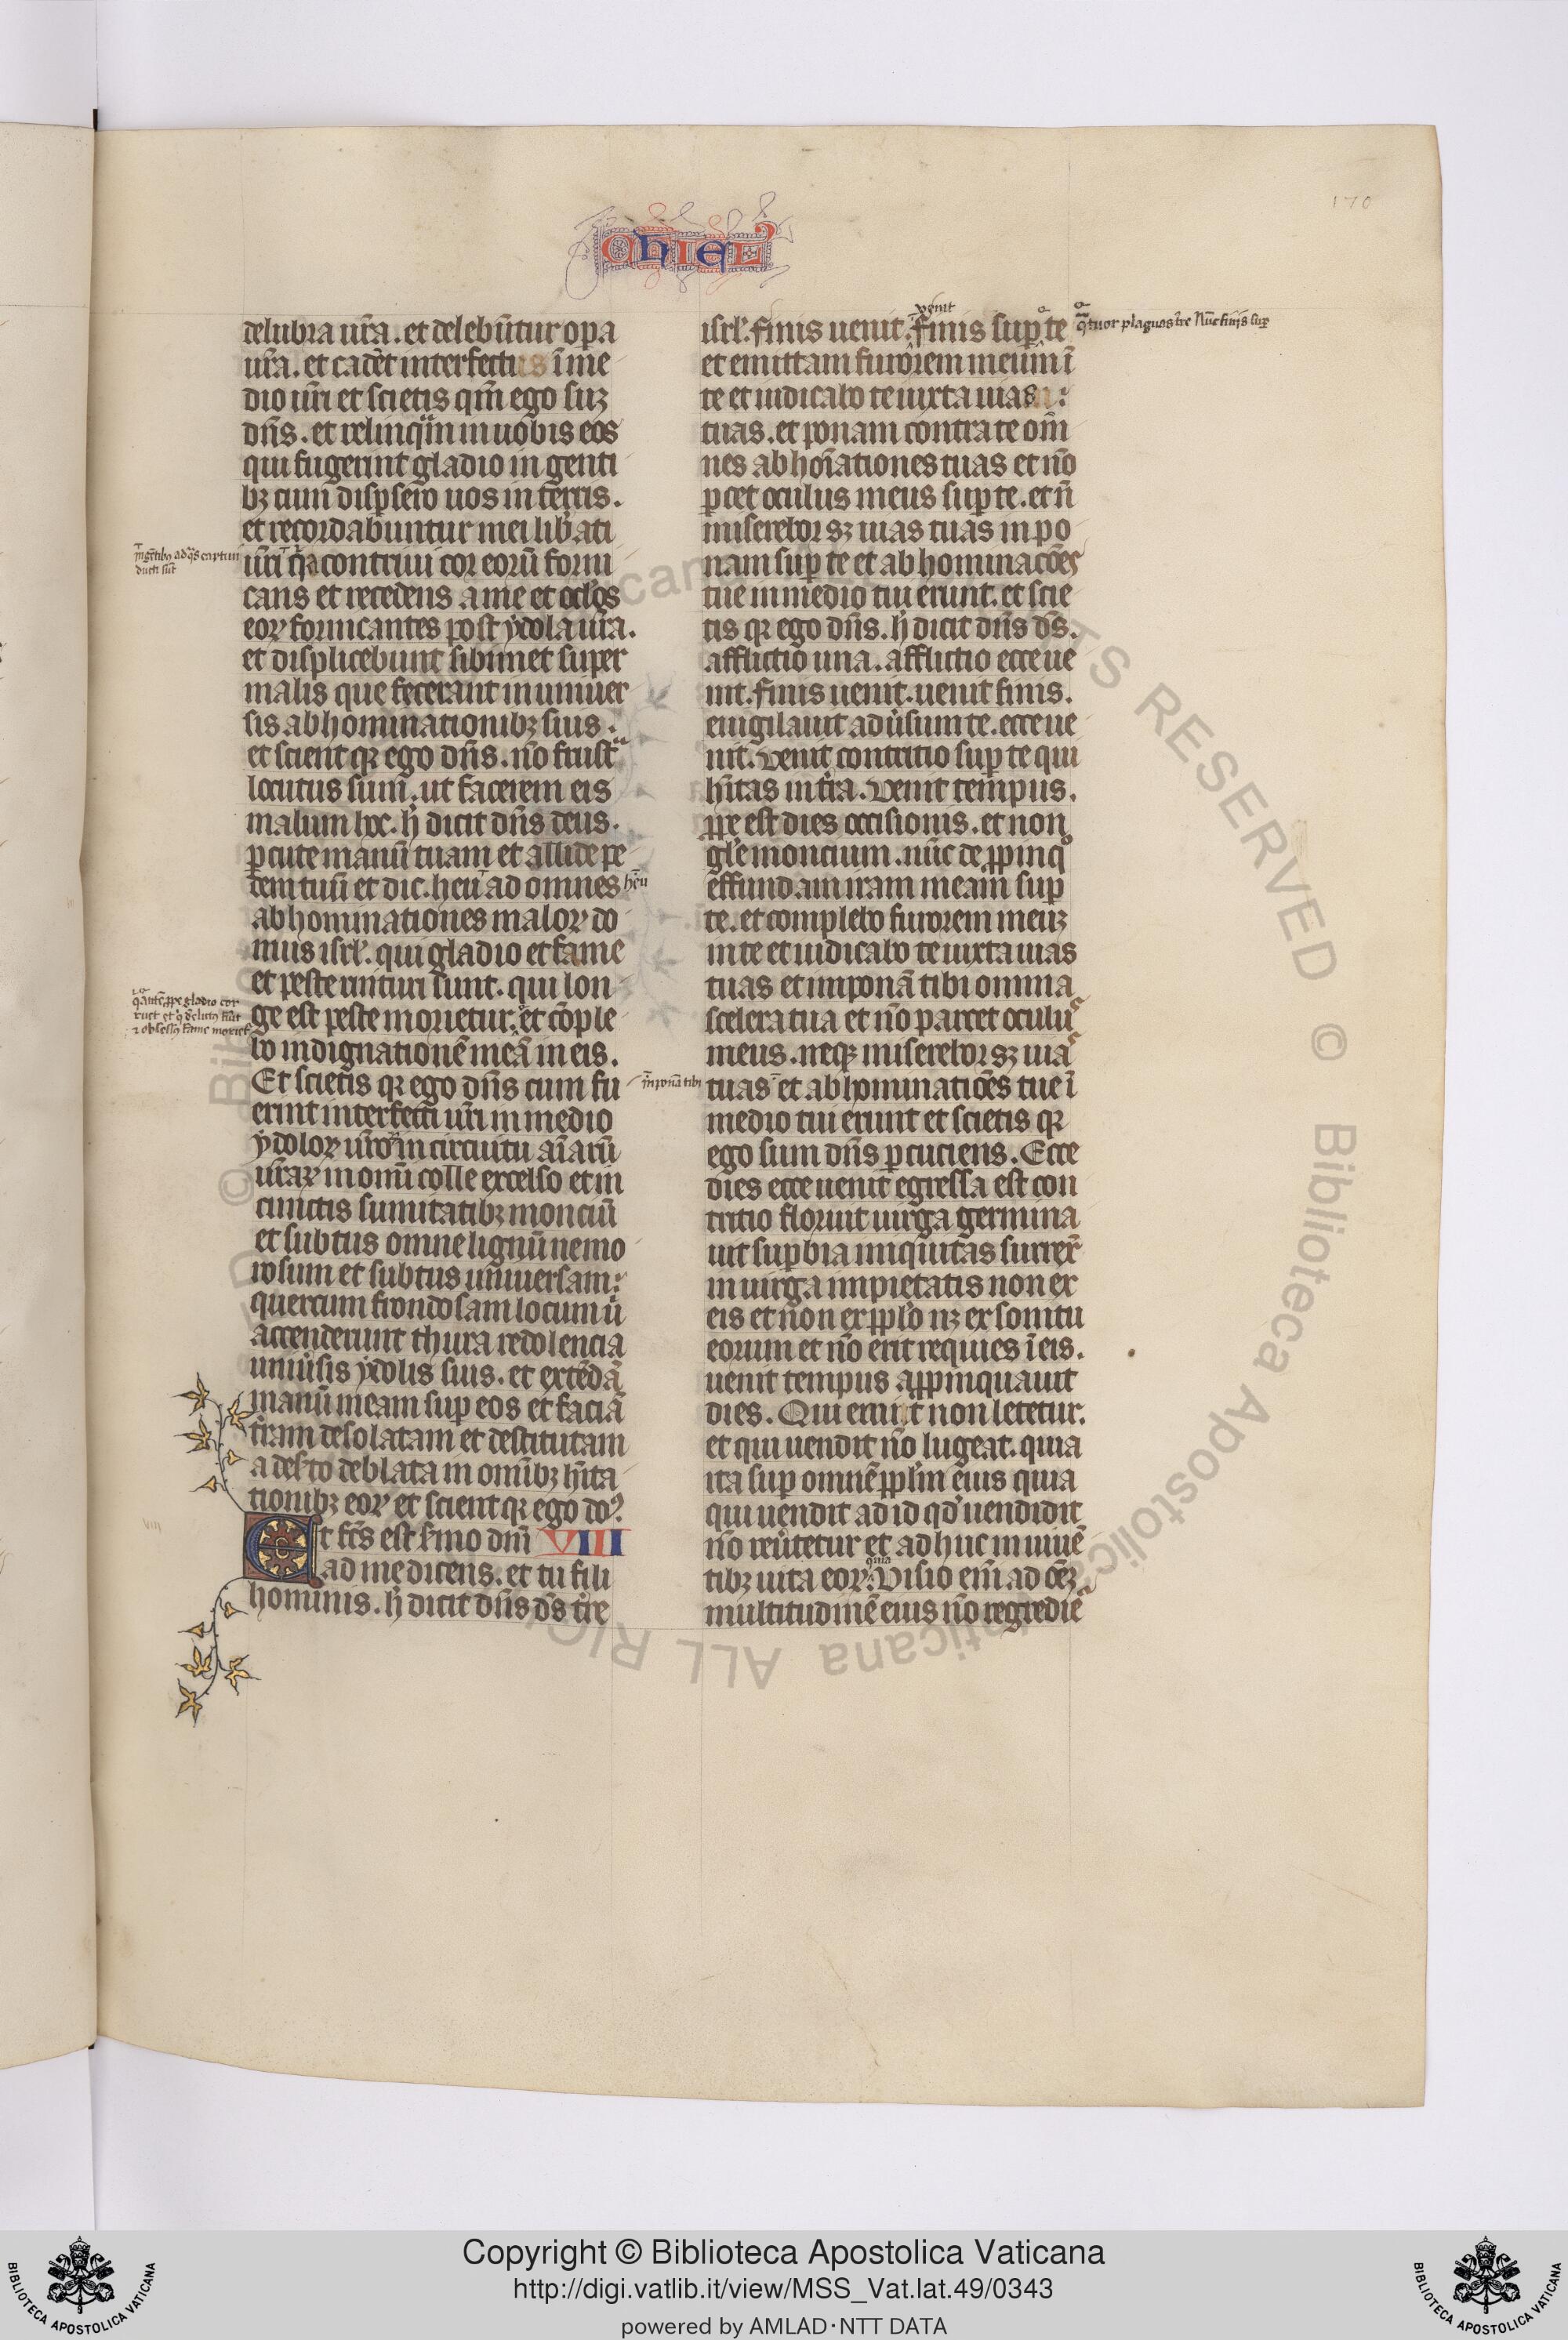 170
chiel
delubra ur̄a. et deleb̄utur op̲a
ur̄a. et cadēt interfectus ī me
dio ur̄i et scietis qm̄ ego suꝫ
dn̄s. et relinqm̄ in uobis eos
qui fugerint gladio in genti
bꝫ cum disp̲sero uos in terris.
et recordabuntur mei lib̓ati
ur̄i qꝛ contriui cor eorū forni
cans et recedens a me et oclōs
eoꝝ fornicantes post ẏdola ur̄a.
et displicebunt sibimet super
malis que fecerant in uniuer
sis abhominationibꝫ suis.
et scient qꝛ ego dn̄s. nō frustᵃ
locutus sum. ut facerem eis
malum hoc. h̄ dicit dn̄s deus.
p̲cute manū tuam et allide pe
dem tuū et dic. heu ad omnes
heu
abhominationes maloꝝ do
mus isrl̓. qui gladio et fame
et peste ruituri sunt. qui lon
ge est peste morietur. et cōple
bo indignationē meā in eis.
Et scietis qꝛ ego dn̄s cum fu
erint interfecti ur̄i in medio
ẏdoloꝝ ur̄oꝝ in circuitu aīarū
ur̄aꝝ in omī colle excelso et in
cunctis sumitatibꝫ monciū
et subtus omne lignū nemo
rosum et subtus uniuersam
quercum frondosam locum ū
accenderunt thura redolencia
uniūsis ẏdolis suis. et extēdā
manū meam sup̲ eos et faciā
tr̄am desolatam et destitutam
a des̄to deblata in omībꝫ hīta
tionibꝫ eoꝝ et scient qꝛ ego do᷒.
Et fc̄s est s̄mo dn̄i VIII
ad me dicens. et tu fili
hominis. h̄ dicit dn̄s dš tr̄e
isrl̓. finis uenit. finis sup̲ te
venit
qᵃtuor plagas tr̄e Nūc finis sup̲
et emittam furorem meum ī
te et iudicabo te iuxta uias
tuas. et ponam contra te om̄
nes abhoīationes tuas et nō
p̲cet oculus meus sup̲ te. et n̄
miserebor sꝫ uias tuas inpo
nam sup̲ te et abhominacōes
tue in medio tui erunt. et scie
tis qꝛ ego dn̄s. h̄ dicit dn̄s dš.
afflictio una. afflictio ecce ue
nit. finis uenit. uenit finis.
euigilauit adūsum te. ecce ue
nit. venit contritio sup̲ te qui
hītas in tr̄a. venit tempus.
ꝓpe est dies occisionis. et non
gl̓e moncium. nūc de ꝓpinqᵒ
effundam iram meam sup̲
te. et complebo furorem meuꝫ
in te et iudicabo te iuxta uias
tuas et inponā tibi omnia
scelera tua et nō parcet oculus
meus. neqꝫ miserebor sꝫ uias
tuas et abhominatiōes tue ī
inponā tibi
medio tui erunt et scietis qꝛ
ego sum dn̄s p̲cuciens. Ecce
dies ecce uenit egressa est con
tritio floruit uirga germina
uit sup̲bia iniquitas surrex̄
in uirga impietatis non ex
eis et non ex ppl̓o nꝫ ex sonitu
eorum et nō erit requies ī eis.
uenit tempus appinquauit
dies. Qui emit non letetur.
et qui uendit nō lugeat. quia
ira sup̲ omnē ppl̓m eius quia
qui uendit ad id qd̓ uendidit
nō reūtetur et adhuc in uiuē
tibꝫ uita eoꝝ. Visio eīm ad oēꝫ
quia
multitudinē eius nō regredie
in gētibꝫ ad qᵃs captiui
ducti sūt
Copyright © Biblioteca Apostolica Vaticana
http://digi.vatlib.it/view/MSS_Vat.lat.49/0343
powered by AMLAD·NTT DATA
BIBLIOTECA APOSTOLICA VATICANA
BIBLIOTECA APOSTOLICA VATICANA